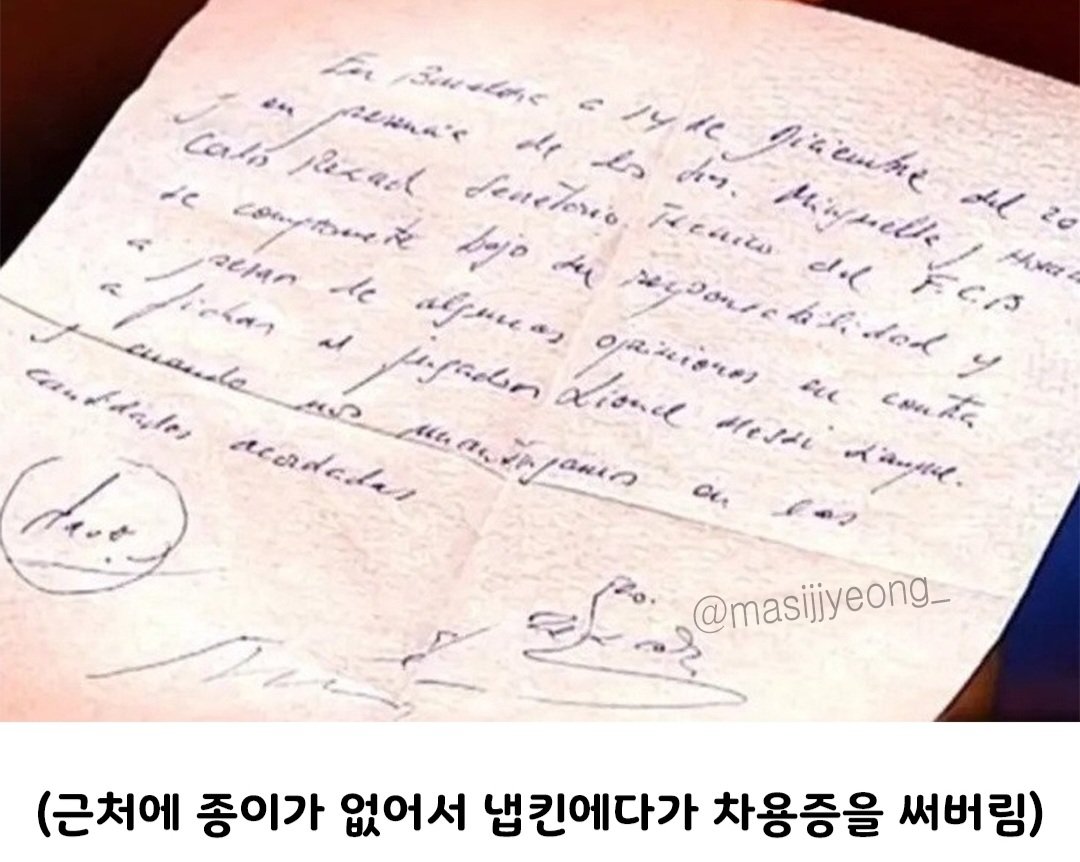 En Barcelona a 14 de Diciembre del 20
y en presencia de los Srs. Minguella y Horacio
Carlos Rexach Secretario Técnico del F.C.B
se compromete bajo su responsabilidad y
a pesar de algunas opiniones en contra
a fichar al jugador Lionel Messi
y cuando nos mantengamos en las
cantidades acordadas
@masijjyeong_
(근처에 종이가 없어서 냅킨에다가 차용증을 써버림)